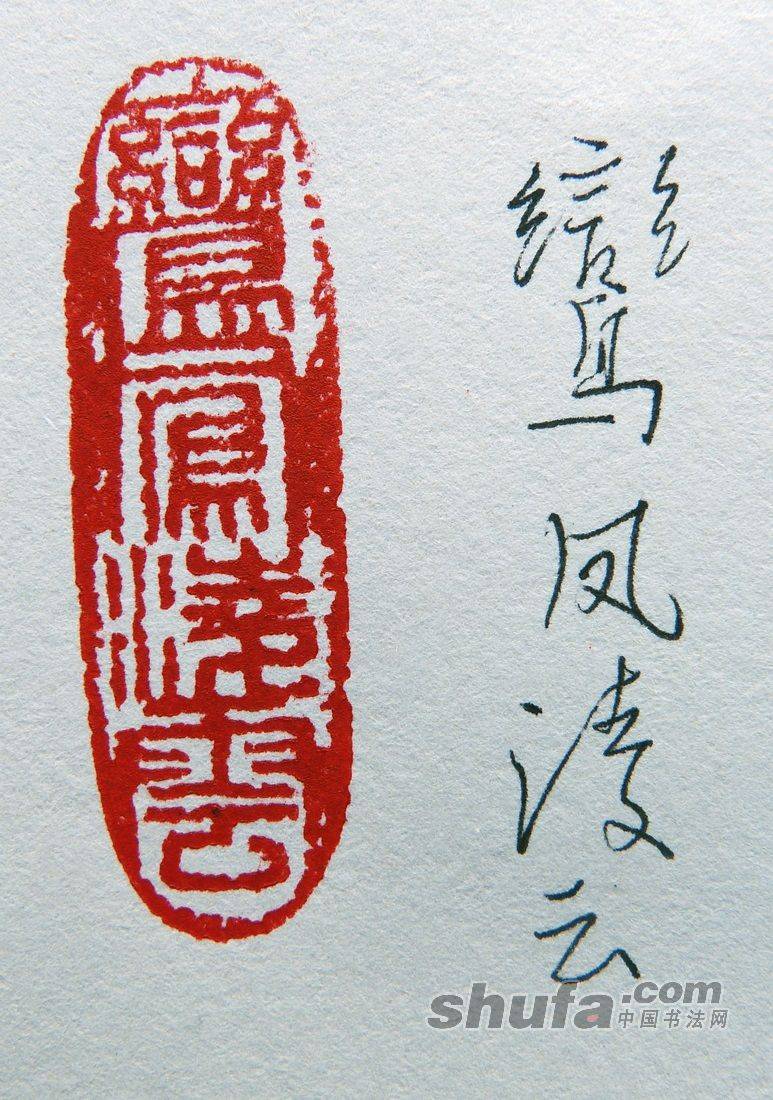 鸞鳳淩雲
鸞凤凌云
shufa.com
中国书法网